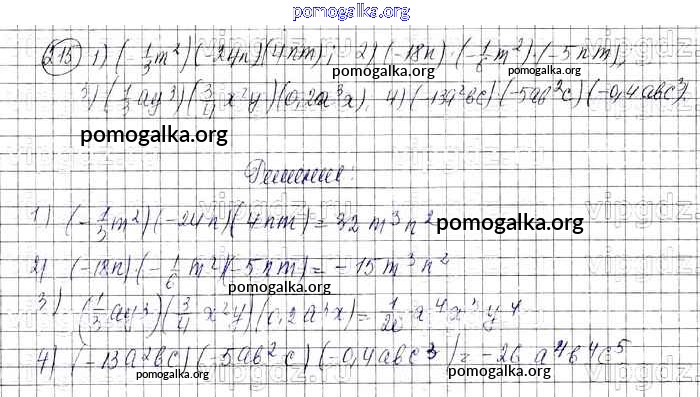 pomogalka.org
215 1) (-1/3 m²)(-24n)(4nm); 2) (-18n)·(-1/6 m²)·(-5nm);
pomogalka.org pomogalka.org
3) (1/3 ay³)(3/4 x²y)(0,2a³x). 4) (-13a²bc)·(-5ab²c)(-0,4abc³).
pomogalka.org
Решение:
1) (-1/3 m²)(-24n)(4nm) = 32m³n²
pomogalka.org
2) (-18n)·(-1/6 m²)(-5nm) = -15m³n²
pomogalka.org
3) (1/3 ay³)(3/4 x²y)(0,2a³x) = 1/20 a⁴x³y⁴
4) (-13a²bc)(-5ab²c)(-0,4abc³) = -26a⁴b⁴c⁵
pomogalka.org pomogalka.org
pomogalka.org